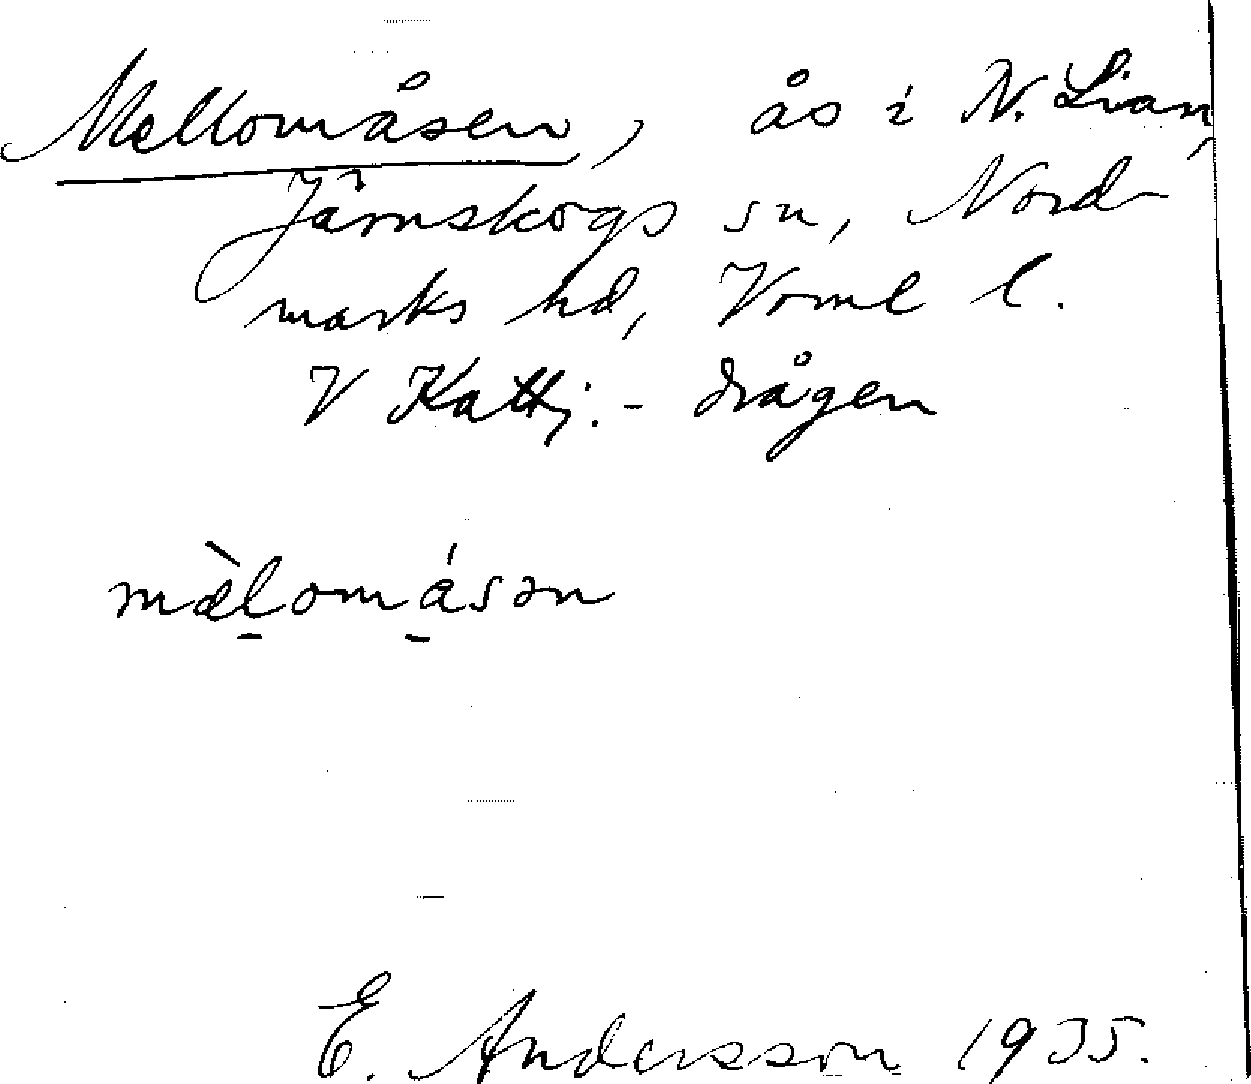 Mellomåsen, ås i N. Lian,
Järnskogs sn, Nord-
marks hd, Värml l.
V Kattj.-drågen
mæ̀lomásən
E. Andersson 1935.